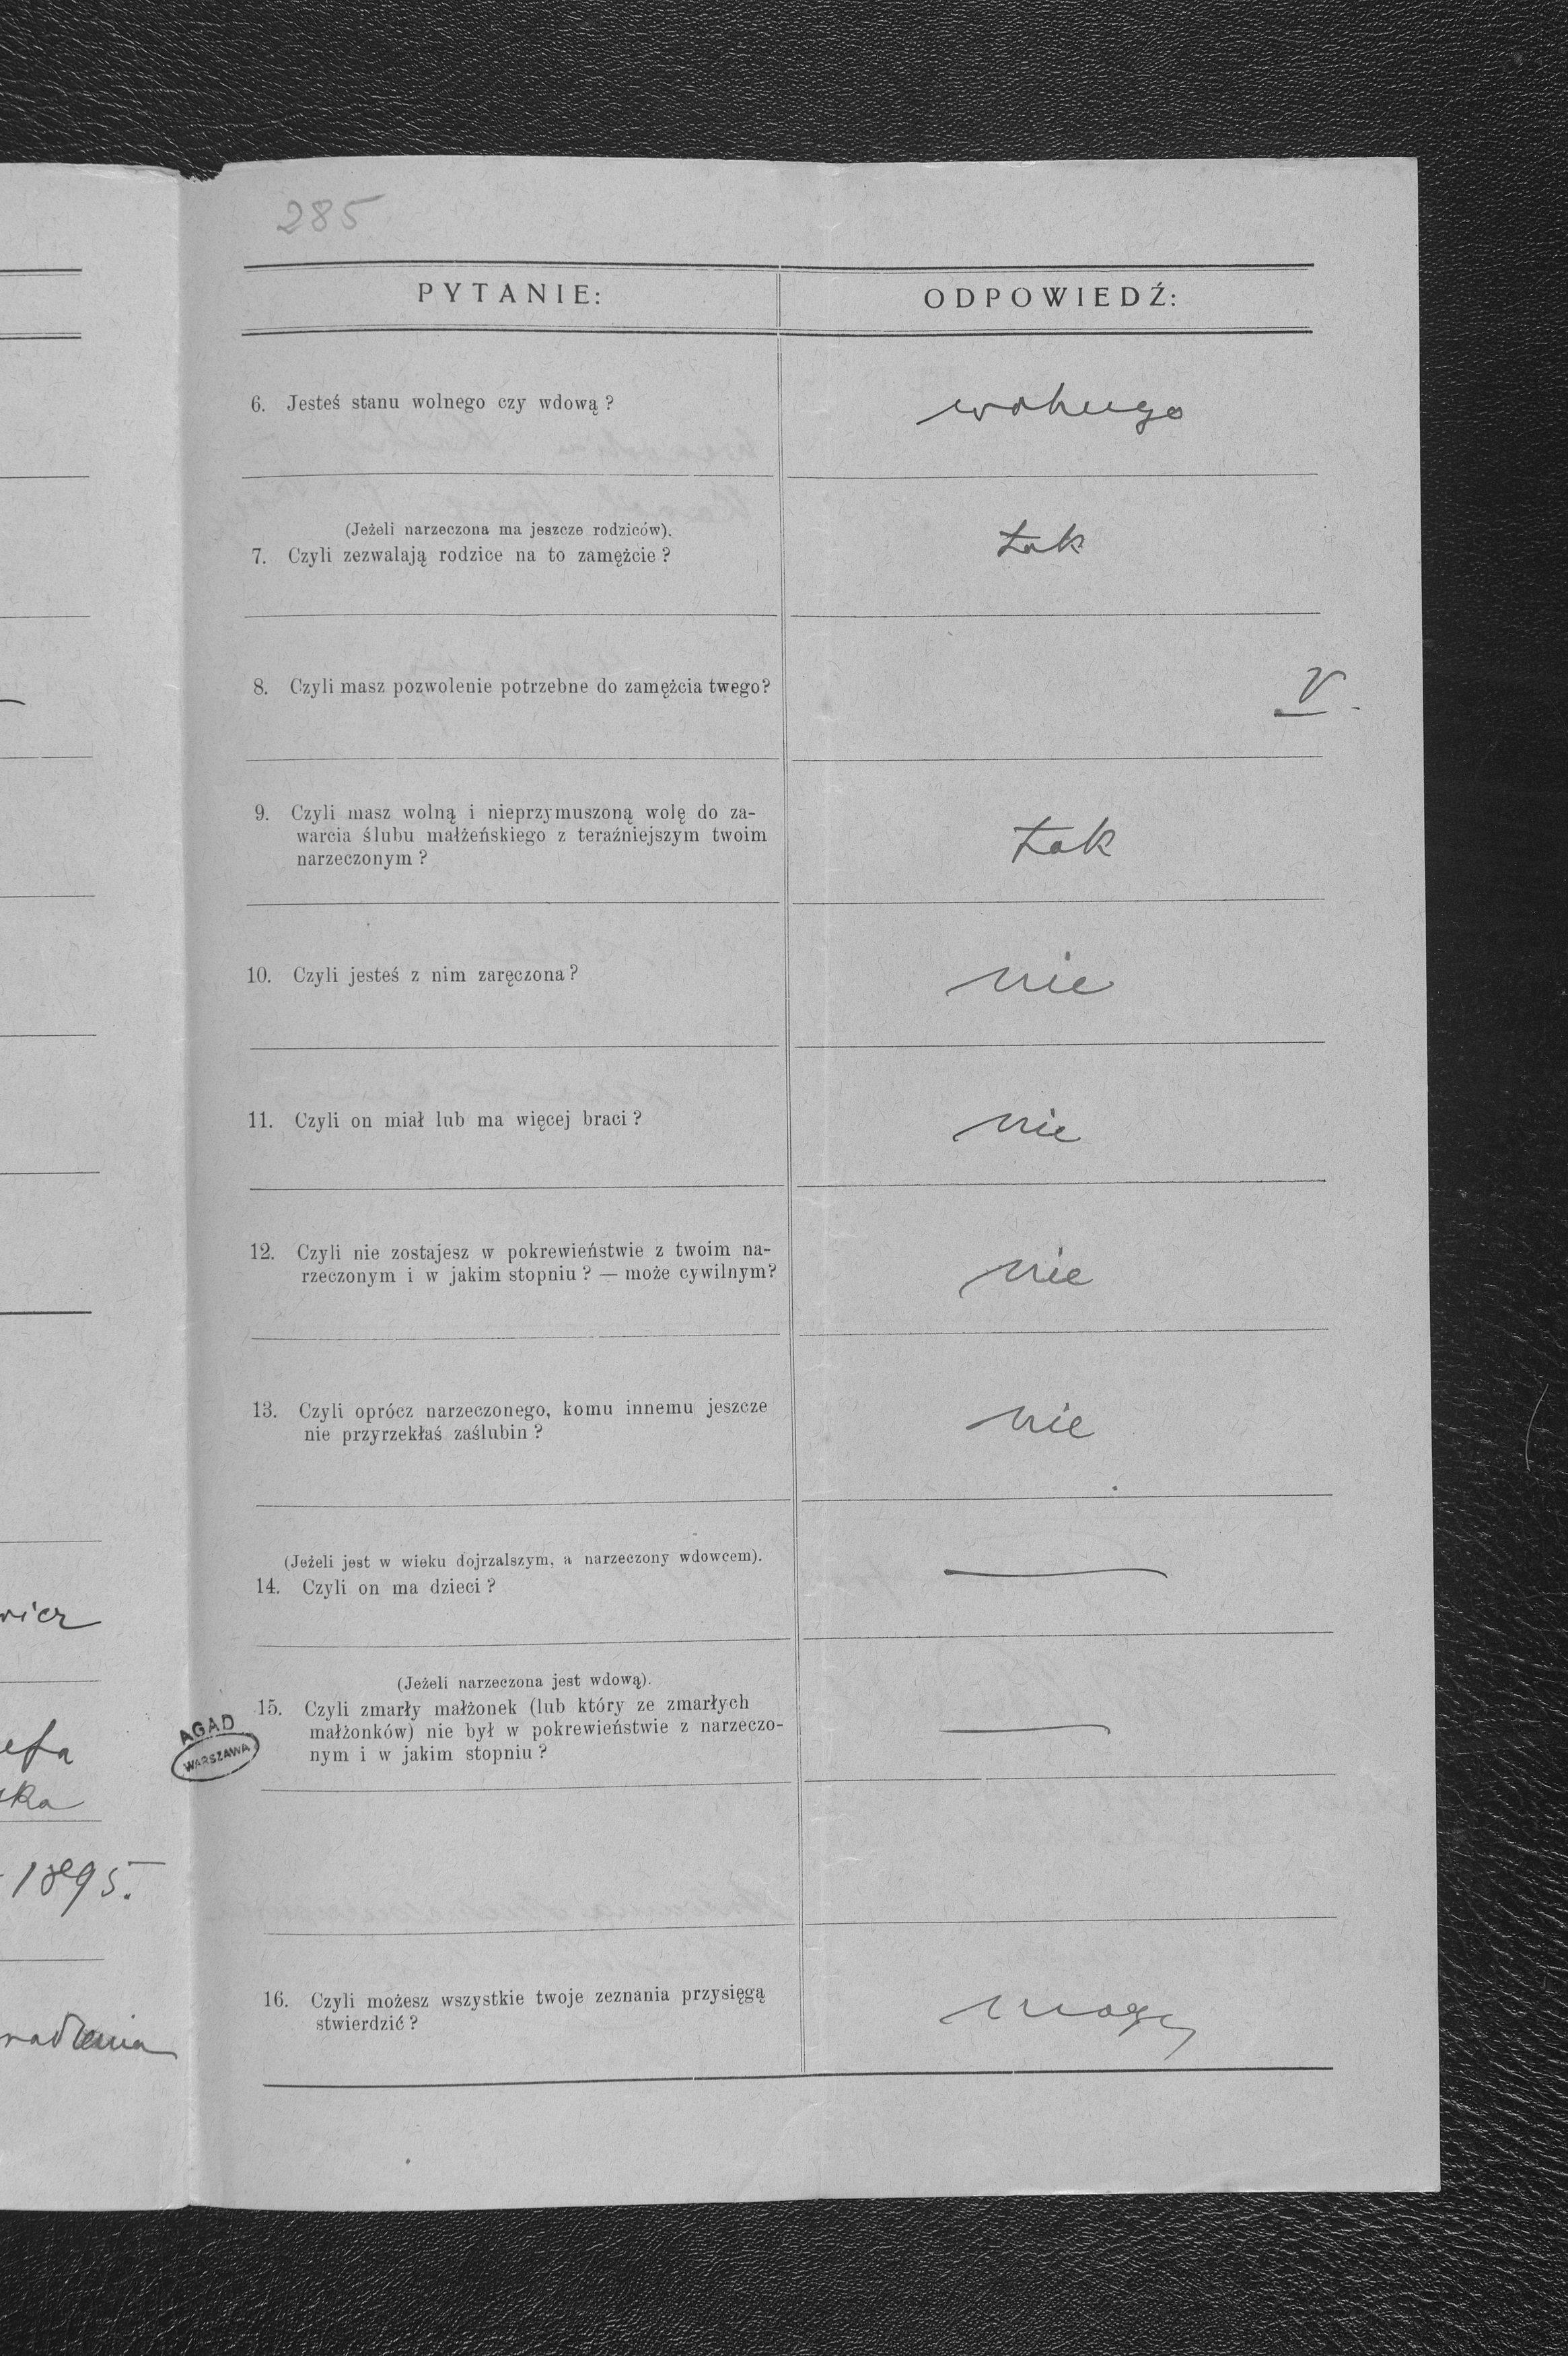 285
PYTANIE:
ODPOWIEDŹ:
6. Jesteś stanu wolnego czy wdową ?
wolnego
(Jeżeli narzeczona ma jeszcze rodziców).
7. Czyli zezwalają rodzice na to zamężcie ?
tak
8. Czyli masz pozwolenie potrzebne do zamężcia twego?
V
9. Czyli masz wolną i nieprzymuszoną wolę do za-
warcia ślubu małżeńskiego z teraźniejszym twoim
narzeczonym ?
tak
10. Czyli jesteś z nim zaręczona ?
nie
11. Czyli on miał lub ma więcej braci ?
nie
12. Czyli nie zostajesz w pokrewieństwie z twoim na-
rzeczonym i w jakim stopniu ? — może cywilnym?
nie
13. Czyli oprócz narzeczonego, komu innemu jeszcze
nie przyrzekłaś zaślubin ?
nie
(Jeżeli jest w wieku dojrzalszym, a narzeczony wdowcem).
14. Czyli on ma dzieci ?
—
(Jeżeli narzeczona jest wdową).
15. Czyli zmarły małżonek (lub który ze zmarłych
małżonków) nie był w pokrewieństwie z narzeczo-
nym i w jakim stopniu ?
—
16. Czyli możesz wszystkie twoje zeznania przysięgą
stwierdzić ?
mogę
wicz
efa
ska
1895.
AGAD
WARSZAWA